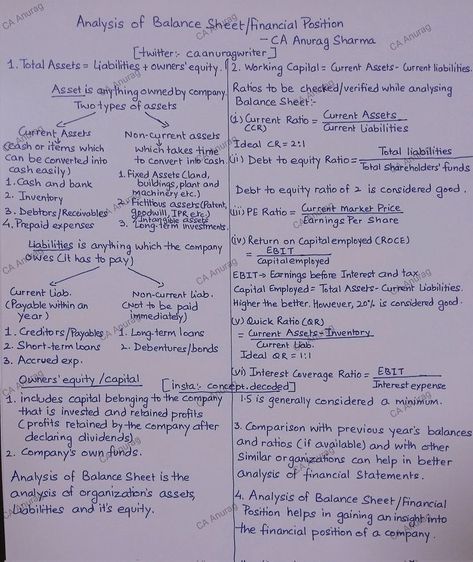 Analysis of Balance Sheet/Financial Position
- CA Anurag Sharma
[twitter:- caanuragwriter]
1. Total Assets = Liabilities + owners' equity.
Asset is anything owned by company.
Two types of assets
Current Assets
(cash or items which
can be converted into
cash easily)
1. Cash and bank
2. Inventory
3. Debtors/Receivables
4. Prepaid expenses
Non-current assets
which takes time
to convert into cash.
1. Fixed Assets (land,
buildings, plant and
machinery etc.)
2. Fictitious assets (Patent,
goodwill, IPR etc.)
/Intangible assets
3. Long-term investments.
Liabilities is anything which the company
owes (it has to pay)
Current Liab.
(Payable within an
year)
1. Creditors/Payables
2. Short-term loans
3. Accrued exp.
Non-current Liab.
(Not to be paid
immediately)
1. Long-term loans
2. Debentures/bonds
Owners' equity/capital
[insta:- concept.decoded]
1. includes capital belonging to the company
that is invested and retained profits
(profits retained by the company after
declaring dividends)
2. Company's own funds.
Analysis of Balance Sheet is the
analysis of organization's assets,
liabilities and it's equity.
2. Working Capital = Current Assets - Current liabilities.
Ratios to be checked/verified while analysing
Balance Sheet:-
(i) Current Ratio = Current Assets
(CR) Current Liabilities
Ideal CR = 2:1
(ii) Debt to equity Ratio = Total liabilities
Total shareholders' funds
Debt to equity ratio of 2 is considered good.
(iii) PE Ratio = Current market Price
Earnings Per Share
(iv) Return on Capital employed (ROCE)
= EBIT
Capital employed
EBIT → Earnings before Interest and tax
Capital Employed = Total Assets - Current Liabilities.
Higher the better. However, 20% is considered good.
(v) Quick Ratio (QR)
= Current Assets - Inventory
Current Liab.
Ideal QR = 1:1
(vi) Interest Coverage Ratio = EBIT
Interest expense
1.5 is generally considered a minimum.
3. Comparison with previous year's balances
and ratios (if available) and with other
Similar organizations can help in better
analysis of financial Statements.
4. Analysis of Balance Sheet/Financial
Position helps in gaining an insight into
the financial position of a company.
CA Anurag